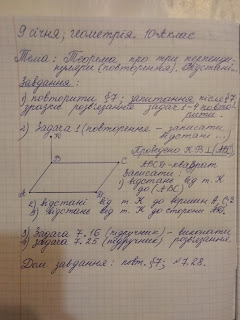 9 січня, геометрія. 10-А клас
Тема: Теорема про три перпенди-
куляри (повторення). Відстані.
Завдання:
1) повторити §7; запитання після §7,
зразки розв'язування задач 1-4 повто-
рити.
2) Задача 1 (повторення - записати
відстані ...)
Проведено КВ⊥(АВС)
ABCD-квадрат
Записати:
1) відстань від т. К
до (АВС)
K
B
C
A
D
2) відстані від т. К до вершин А, С, D
3) відстань від т. К до сторони AD,
3) Задача 7.16 (підручник) - виконати
4) Задача 7.25 (підручник) розв'язання.
Дом. завдання: повт. §7; №7.28.